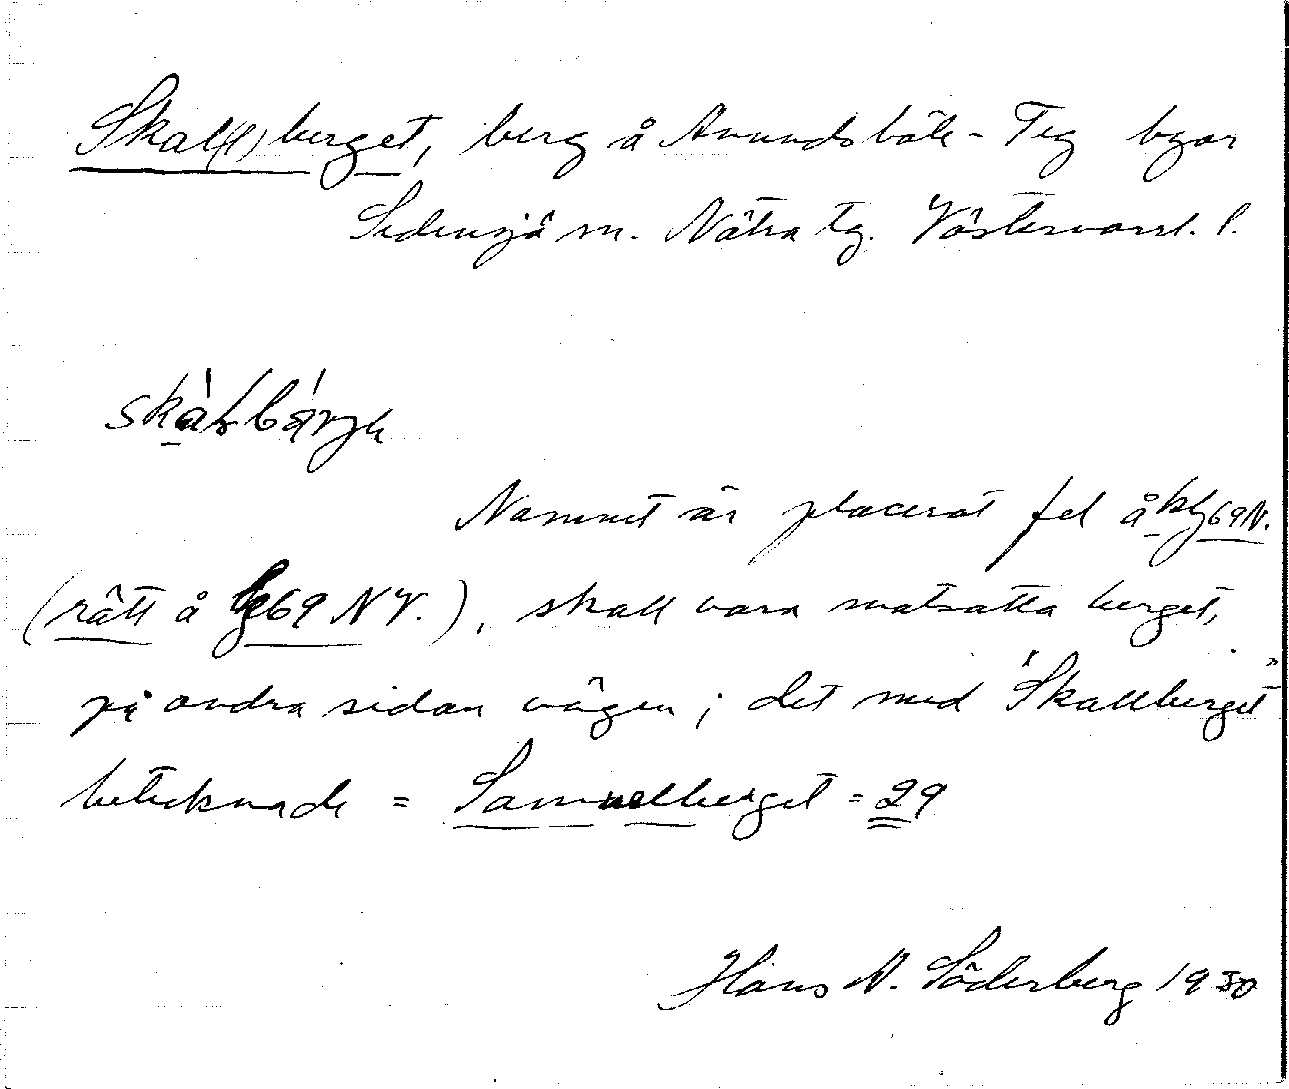 Skal(l)berget, berg å Anundsböle-Teg byar
Sidensjö sn. Nätra tg. Västernorrl. l.
Namnet är placerat fel å blj 69 N.
(rätt å 69 NV.), skall vara motsatta berget,
på andra sidan vägen; det med "Skallberget"
betecknade = Samuelberget = 29
Hans N. Söderberg 1930